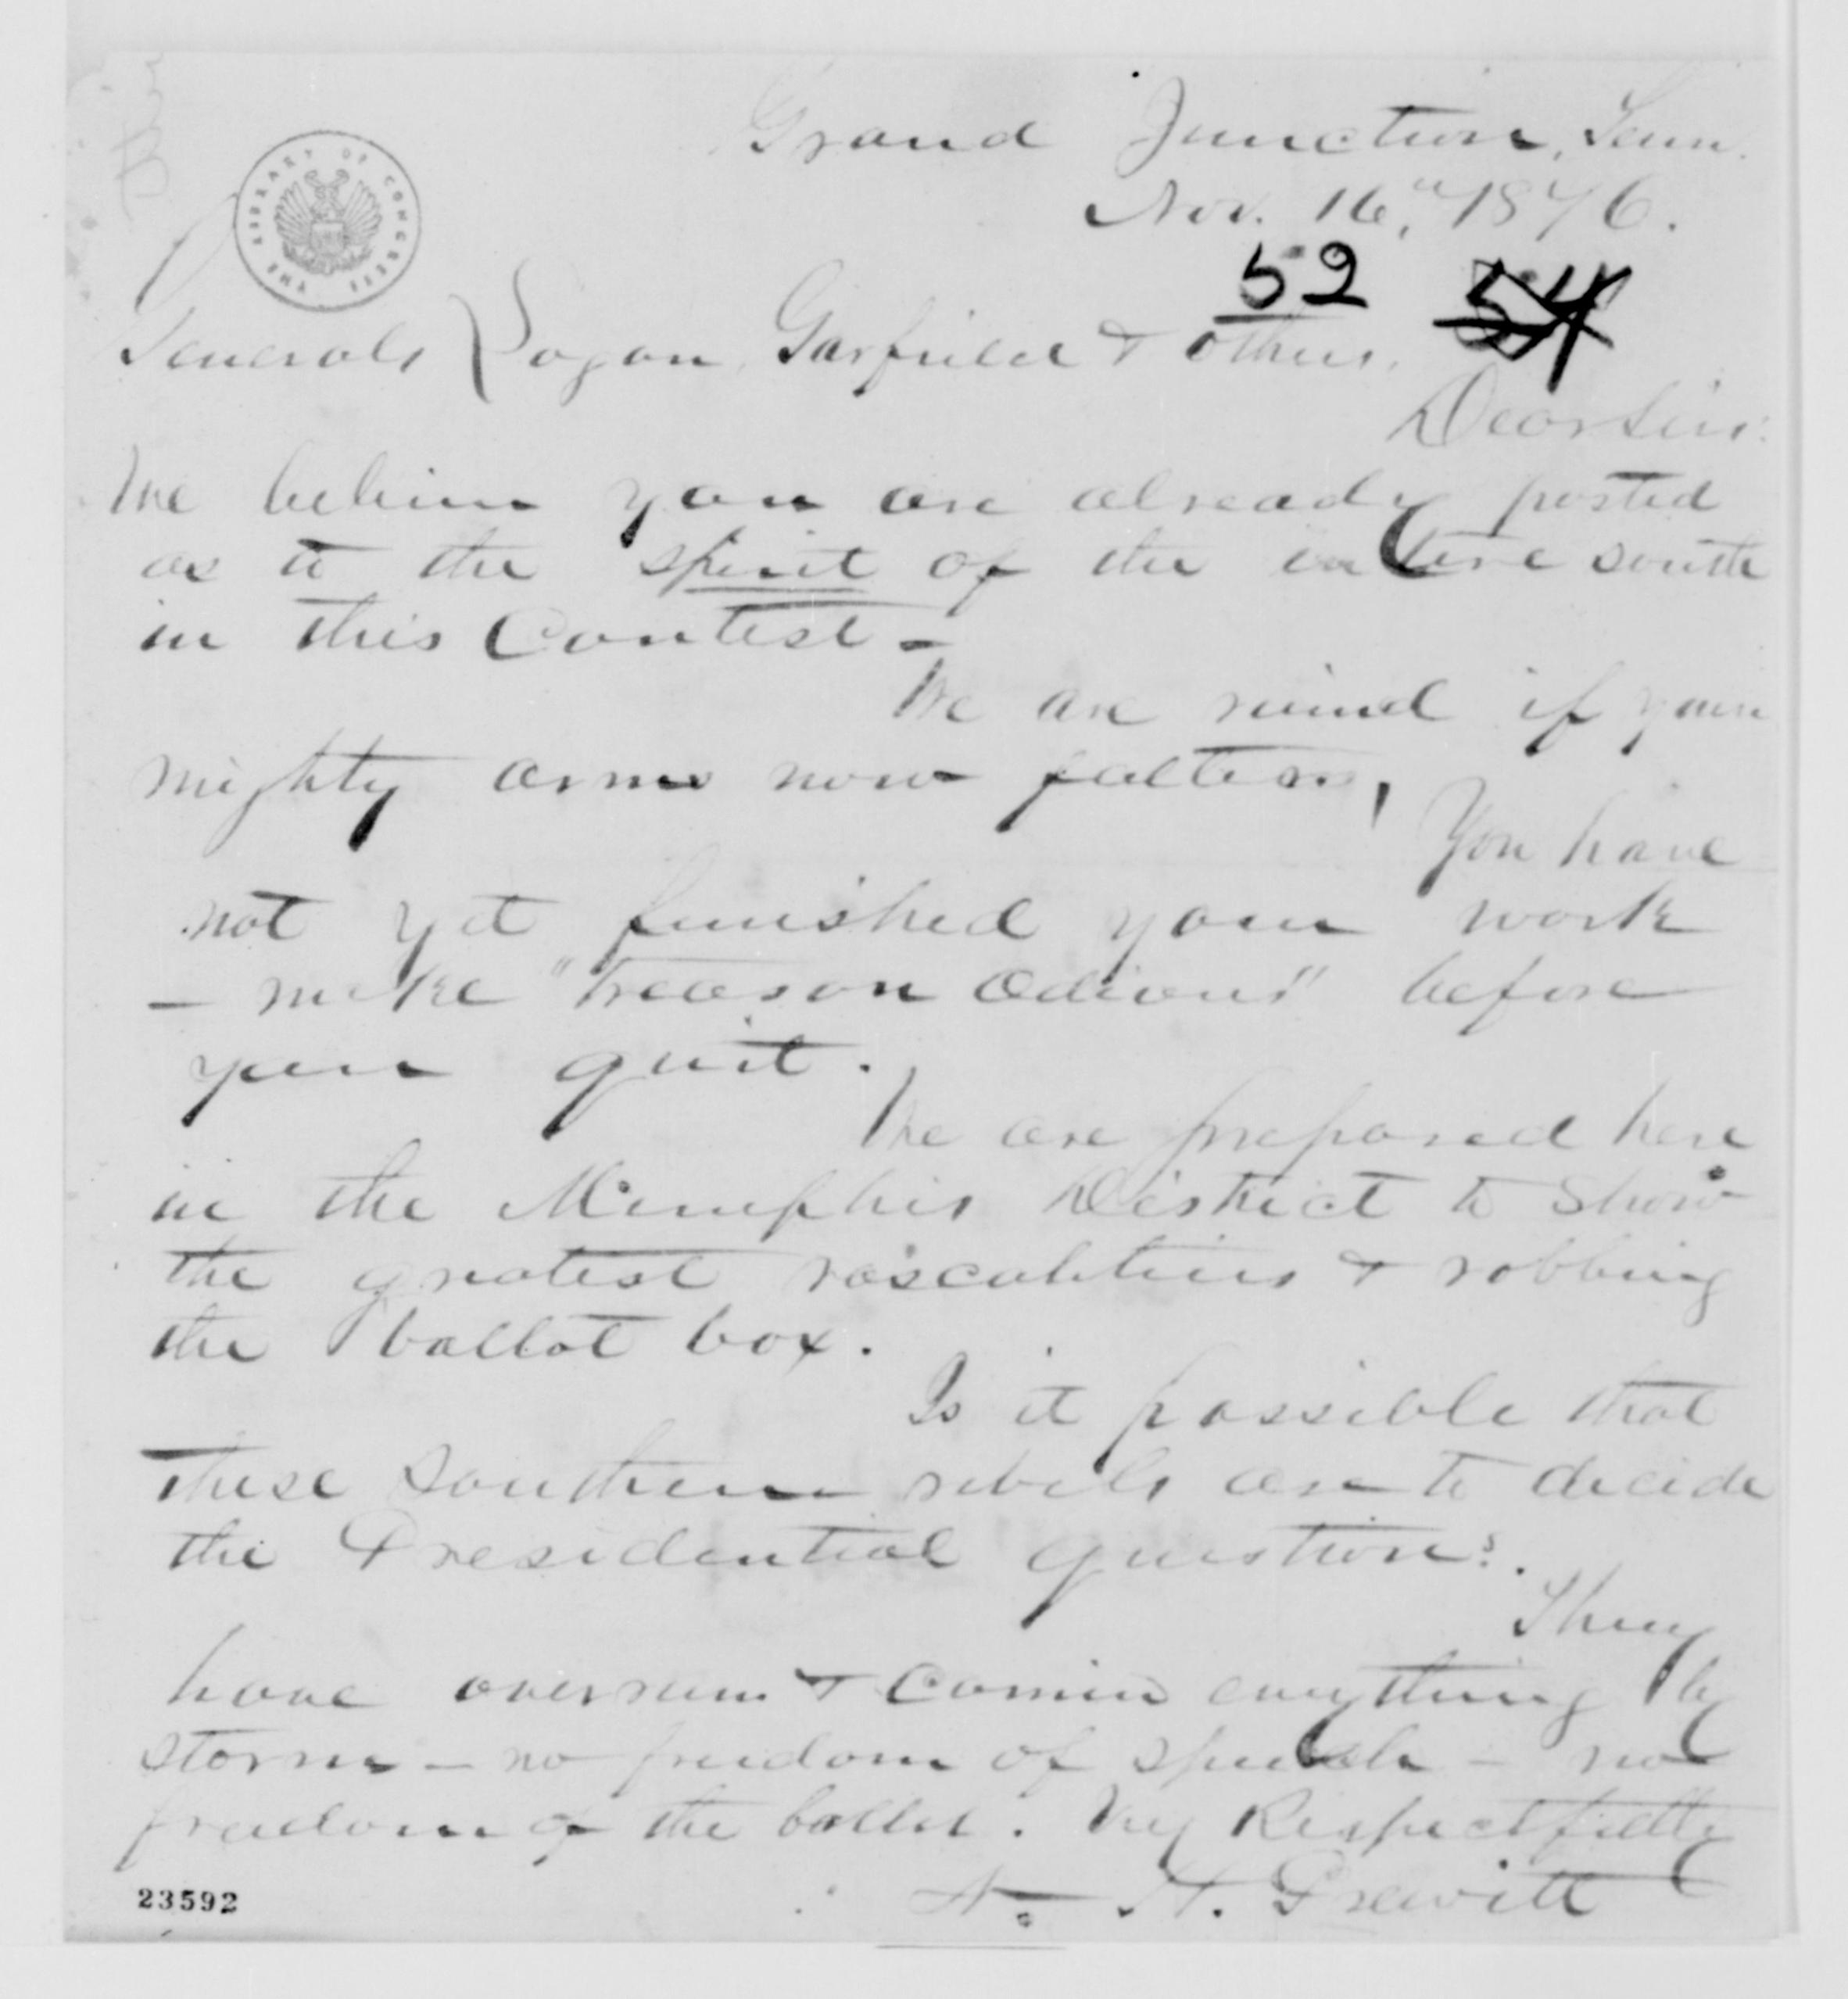 Grand Junction, Tenn.
Nov. 16, 1876.
THE LIBRARY OF CONGRESS
52 54
Generals Logan, Garfield & others,
Dear Sirs:
We believe you are already posted
as to the spirit of the entire south
in this Contest -
We are ruined if your
mighty arms now falter,
You have
not yet finished your work
- make "treason odious" before
you quit.
We are prepared here
in the Memphis District to show
the greatest rascalities & robbing
the ballot box.
Is it possible that
these Southern rebels are to decide
the Presidential question?
They
have overrun & carried everything by
storm - no freedom of speech - no
freedom of the ballot. Very Respectfully
H. Prewitt
23592